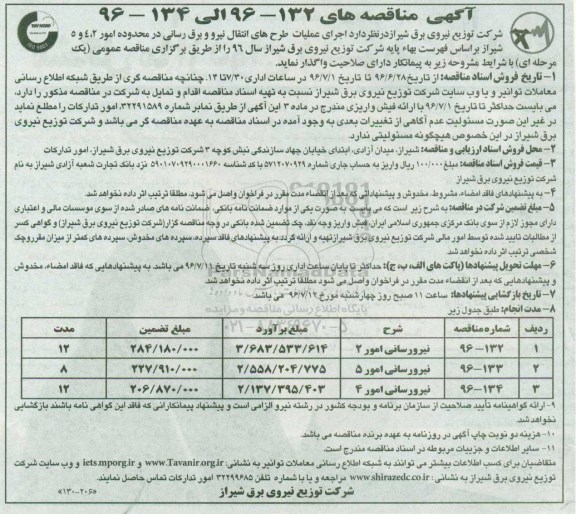 آگهی مناقصه های ۱۳۲-۹۶ الی ۱۳۴-۹۶
شرکت توزیع نیروی برق شیراز در نظر دارد اجرای عملیات طرح های انتقال نیرو و برق رسانی در محدوده امور ۴،۲ و ۵
شیراز براساس فهرست بهاء پایه شرکت توزیع نیروی برق شیراز سال ۹۶ را از طریق برگزاری مناقصه عمومی (یک
مرحله ای) با شرایط مشروحه زیر به پیمانکار دارای صلاحیت واگذار نماید.
۱- تاریخ فروش اسناد مناقصه: از تاریخ ۹۶/۶/۲۸ تا تاریخ ۹۶/۷/۱ در ساعات اداری ۷/۳۰ تا ۱۳. چنانچه مناقصه گری از طریق شبکه اطلاع رسانی
معاملات توانیر و یا وب سایت شرکت توزیع نیروی برق شیراز نسبت به تهیه اسناد مناقصه اقدام و تمایل به شرکت در مناقصه مذکور را دارد،
می بایست حداکثر تا تاریخ ۹۶/۷/۱ با ارائه فیش واریزی مندرج در ماده ۳ این آگهی از طریق نمابر شماره ۳۲۲۹۱۵۸۹ امور تدارکات را مطلع نماید
در غیر این صورت مسئولیت عدم آگاهی از تغییرات بعدی به وجود آمده در اسناد مناقصه به عهده مناقصه گر می باشد و شرکت توزیع نیروی
برق شیراز در این خصوص هیچگونه مسئولیتی ندارد.
۲- محل فروش اسناد ارزیابی و مناقصه: شیراز، میدان آزادی، ابتدای خیابان جهاد سازندگی نبش کوچه ۳ شرکت توزیع نیروی برق شیراز، امور تدارکات
۳- قیمت فروش اسناد مناقصه: مبلغ ۱۰۰/۰۰۰ ریال واریز به حساب جاری شماره ۵۷۱۲۰۷۰۹۲۹ با کد شناسه ۵۹۰۱۰۷۰۹۲۹۰۰۰۱۶۶۰ نزد بانک تجارت شعبه آزادی شیراز به نام
شرکت توزیع نیروی برق شیراز
۴- به پیشنهادهای فاقد امضاء، مشروط، مخدوش و پیشنهاداتی که بعد از انقضاء مدت مقرر در فراخوان واصل می شود، مطلقا ترتیب اثر داده نخواهد شد.
۵- مبلغ تضمین شرکت در مناقصه: به شرح زیر است که می بایست به صورت یکی از موارد ضمانت نامه بانکی، ضمانت نامه های صادر شده از سوی موسسات مالی و اعتباری
دارای مجوز لازم از سوی بانک مرکزی جمهوری اسلامی ایران، فیش واریز وجه نقد، چک تضمین شده بانکی در وجه مناقصه گزار (شرکت توزیع نیروی برق شیراز) و گواهی کسر
از مطالبات تایید شده توسط امور مالی شرکت توزیع نیروی برق شیراز تهیه و ارائه گردد. به پیشنهادهای فاقد سپرده، سپرده های مخدوش، سپرده های کمتر از میزان مقرر و چک
شخصی ترتیب اثر داده نخواهد شد.
۶- مهلت تحویل پیشنهادها (پاکت های الف، ب، ج): حداکثر تا پایان ساعت اداری روز سه شنبه تاریخ ۹۶/۷/۱۱ می باشد. به پیشنهادهایی که فاقد امضاء، مخدوش
و پیشنهادهایی که بعد از انقضاء مدت مقرر در فراخوان واصل می شود مطلقا ترتیب اثر داده نخواهد شد.
۷- تاریخ بازگشایی پیشنهادها: ساعت ۱۱ صبح روز چهارشنبه مورخ ۹۶/۷/۱۲ می باشد.
۸- مدت انجام: طبق جدول زیر
ردیف شماره مناقصه شرح مبلغ برآورد مبلغ تضمین مدت
۱ ۹۶-۱۳۲ نیرورسانی امور ۲ ۳/۶۸۳/۵۳۳/۶۱۴ ۲۸۴/۱۸۰/۰۰۰ ۱۲
۲ ۹۶-۱۳۳ نیرورسانی امور ۵ ۲/۵۵۸/۲۰۴/۷۷۵ ۲۲۷/۹۱۰/۰۰۰ ۸
۳ ۹۶-۱۳۴ نیرورسانی امور ۴ ۲/۱۳۷/۳۹۵/۴۰۳ ۲۰۶/۸۷۰/۰۰۰ ۱۲
۹- ارائه گواهینامه تأیید صلاحیت از سازمان برنامه و بودجه کشور در رشته نیرو الزامی است و پیشنهاد پیمانکارانی که فاقد این گواهی نامه باشند بازگشایی
نخواهد شد.
۱۰- هزینه دو نوبت چاپ آگهی در روزنامه به عهده برنده مناقصه می باشد.
۱۱- سایر اطلاعات و جزییات مربوطه در اسناد مناقصه مندرج است.
متقاضیان برای کسب اطلاعات بیشتر می توانند به شبکه اطلاع رسانی معاملات توانیر به نشانی: www.Tavanir.org.ir و iets.mporg.ir و وب سایت شرکت
توزیع نیروی برق شیراز به نشانی: www.shirazedc.co.ir مراجعه و یا با شماره تلفن ۳۲۲۹۹۶۸۵ امور تدارکات تماس حاصل نمایند.
شرکت توزیع نیروی برق شیراز
«۱۳۰-۲۰۶»